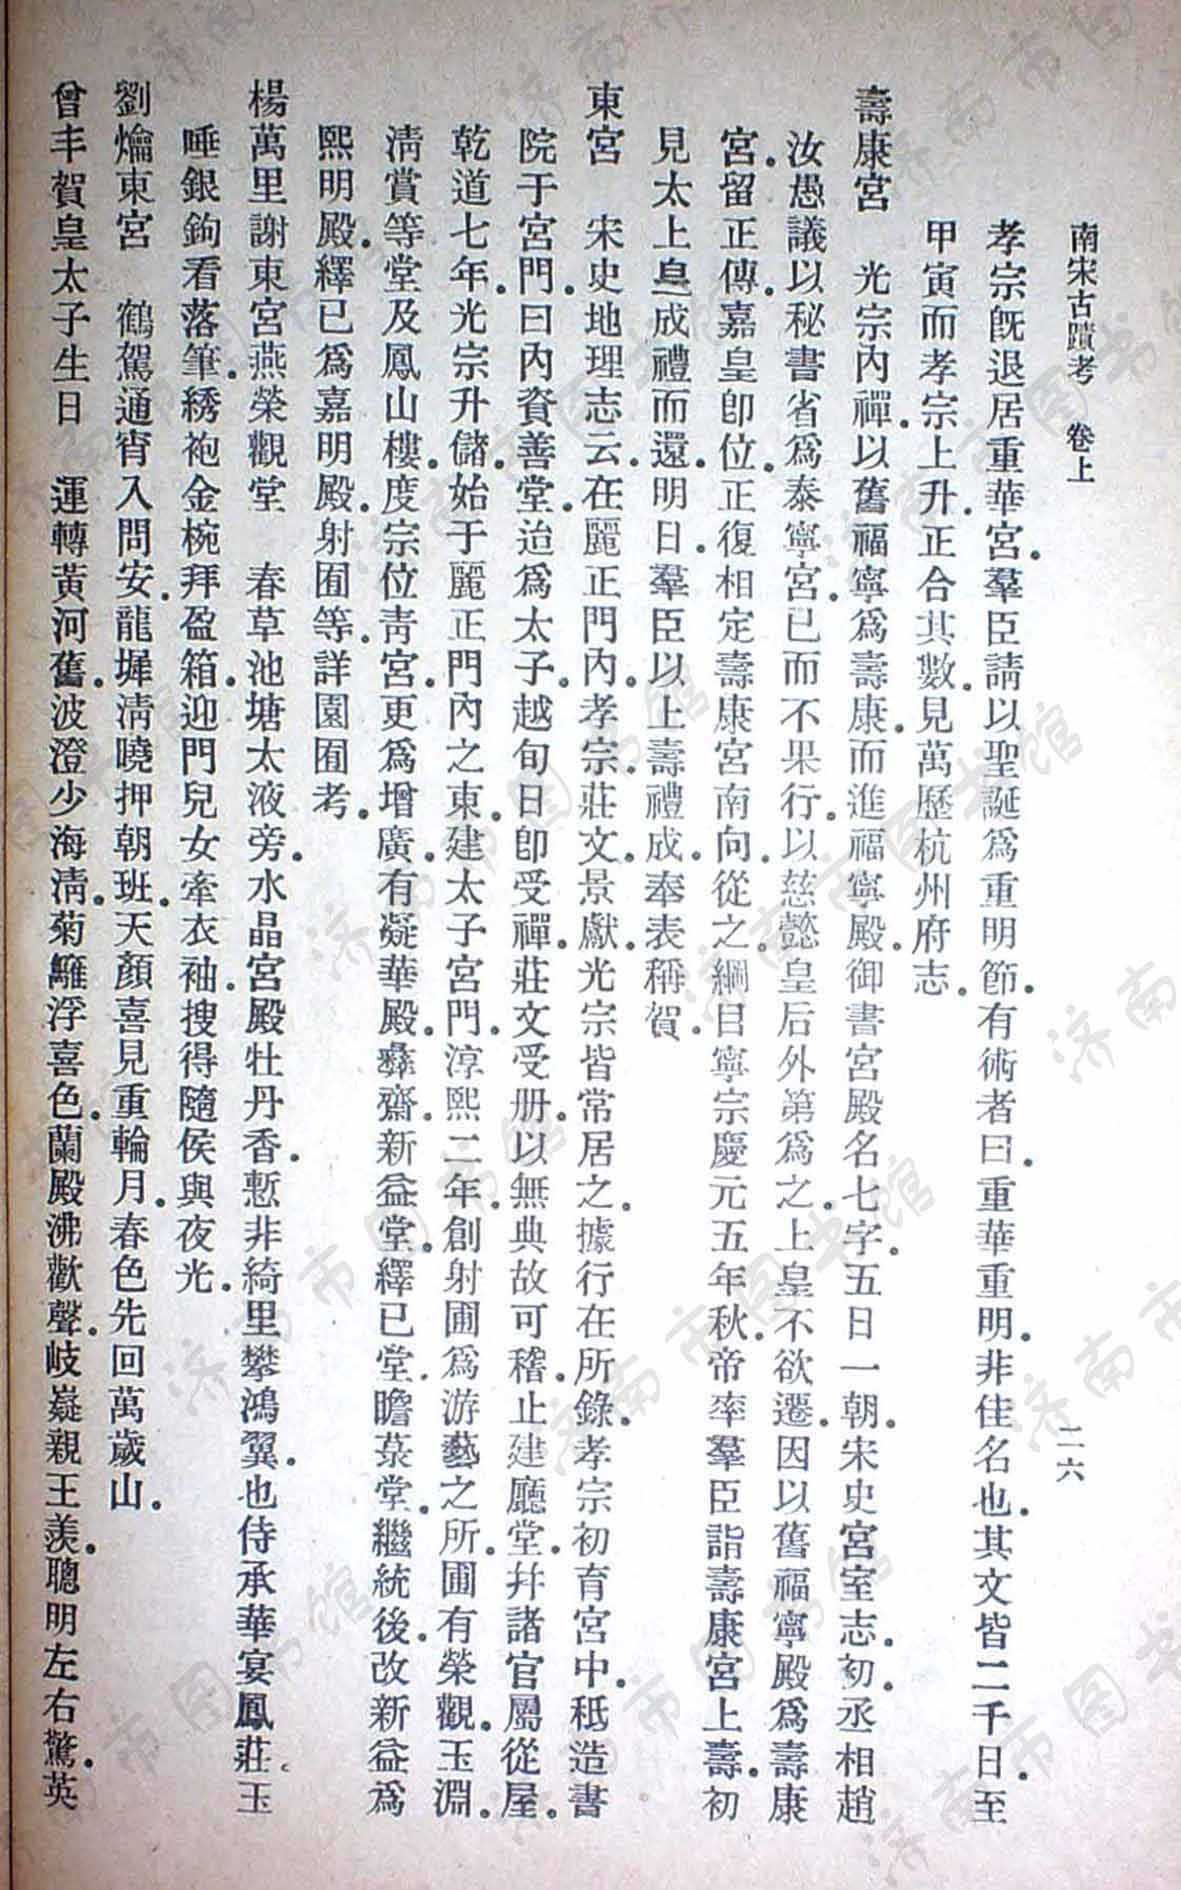 南宋古蹟考 卷上 二六
孝宗旣退居重華宮。羣臣請以聖誕爲重明節。有術者曰。重華重明。非佳名也。其文皆二千日。至
甲寅而孝宗上升。正合其數。見萬歷杭州府志。
壽康宮 光宗內禪。以舊福寧爲壽康。而進福寧殿。御書宮殿名七字。五日一朝。宋史宮室志。初。丞相趙
汝愚議以秘書省爲泰寧宮。已而不果行。以慈懿皇后外第爲之。上皇不欲遷。因以舊福寧殿爲壽康
宮。留正傳。嘉皇卽位。正復相定壽康宮南向。從之。綱目寧宗慶元五年秋。帝率羣臣詣壽康宮上壽。初
見太上皇成禮而還。明日。羣臣以上壽禮成。奉表稱賀。
東宮 宋史地理志云。在麗正門內。孝宗。莊文。景獻。光宗皆常居之。據行在所錄。孝宗初育宮中。秖造書
院于宮門。曰內資善堂。迨爲太子。越旬日卽受禪。莊文受册。以無典故可稽。止建廳堂。幷諸官屬從屋。
乾道七年。光宗升儲。始于麗正門內之東。建太子宮門。淳熙二年。創射圃爲游藝之所。圃有榮觀。玉淵。
淸賞等堂及鳳山樓。度宗位靑宮。更爲增廣。有凝華殿。彝齋。新益堂。繹已堂。瞻菉堂。繼統後。改新益爲
熙明殿。繹已爲嘉明殿。射囿等。詳園囿考。
楊萬里謝東宮燕榮觀堂 春草池塘太液旁。水晶宮殿牡丹香。慙非綺里攀鴻翼。也侍承華宴鳳莊。玉
唾銀鉤看落筆。綉袍金椀拜盈箱。迎門兒女牽衣袖。搜得隨侯與夜光。
劉爚東宮 鶴駕通宵入問安。龍墀淸曉押朝班。天顏喜見重輪月。春色先回萬歲山。
曾丰賀皇太子生日 運轉黃河舊。波澄少海淸。菊籬浮喜色。蘭殿沸歡聲。岐嶷親王羨。聰明左右驚。英